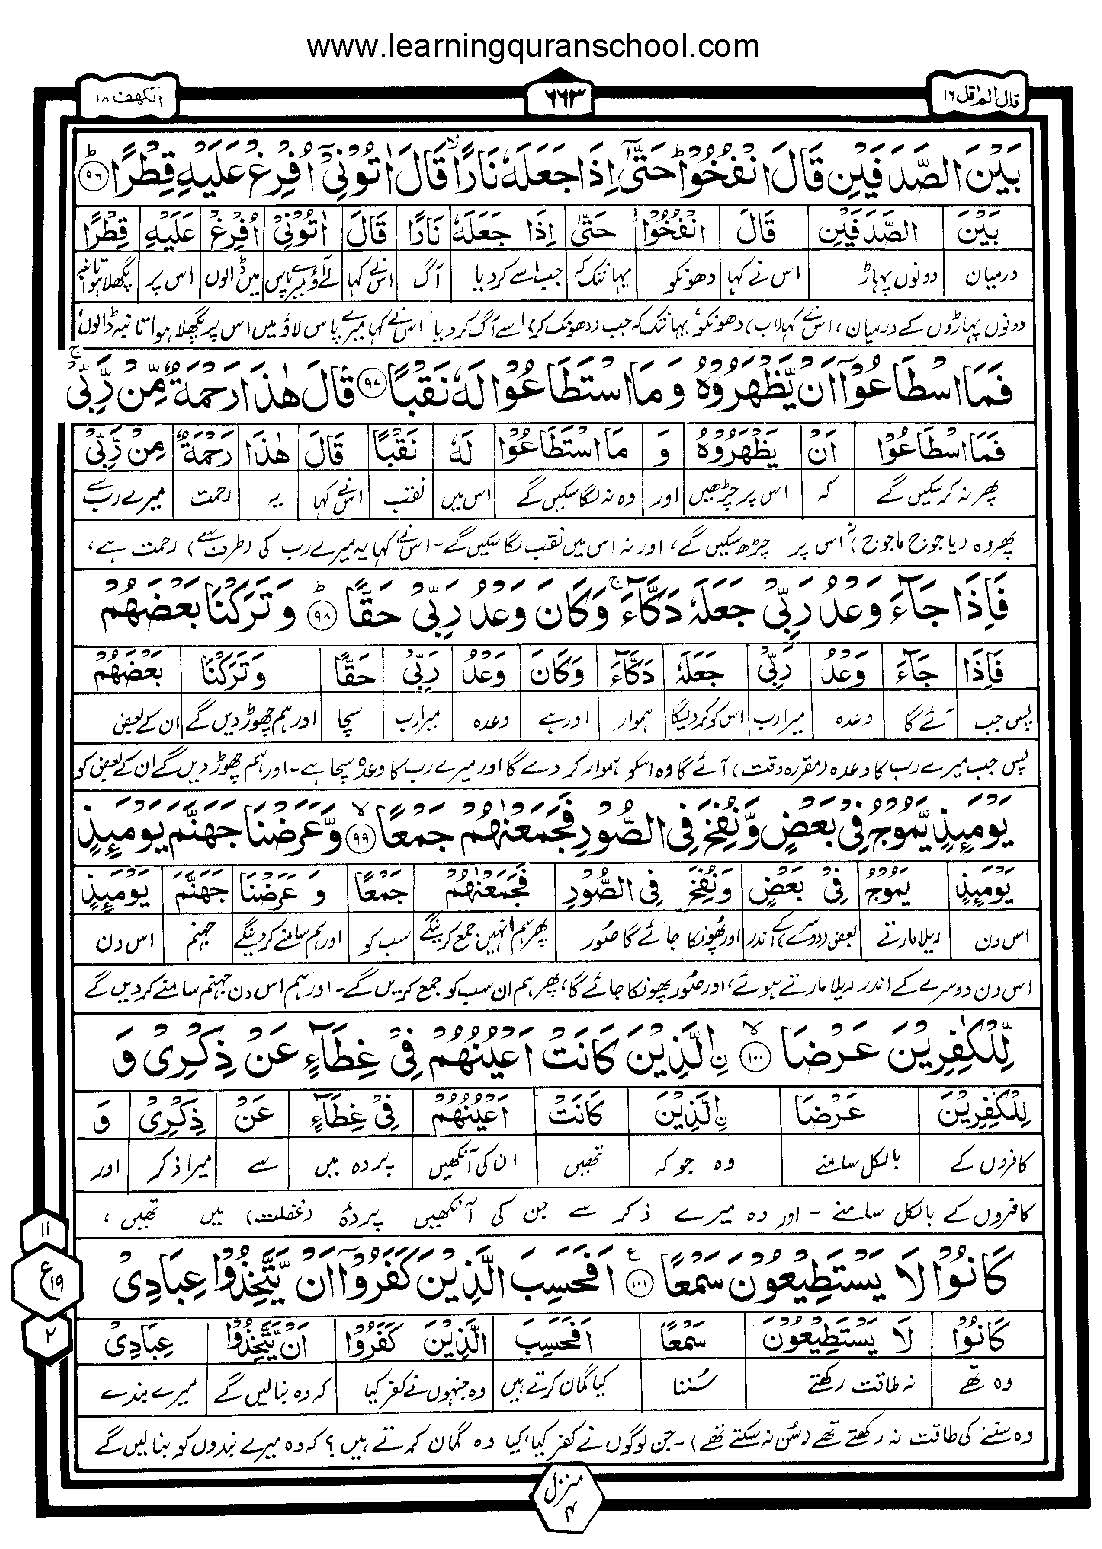 www.learningquranschool.com
قال الم اقل ١٦
٦٦٣
الكهف ١٨
بَيْنَ الصَّدَفَيْنِ قَالَ انْفُخُوْا ؕ حَتّٰۤى اِذَا جَعَلَهٗ نَارًا ۙ قَالَ اٰتُوْنِیْۤ اُفْرِغْ عَلَيْهِ قِطْرًا ؕ ﴿٩٦﴾
بَيْنَ الصَّدَفَيْنِ قَالَ انْفُخُوْا حَتّٰى اِذَا جَعَلَهٗ نَارًا قَالَ اٰتُوْنِیْ اُفْرِغْ عَلَيْهِ قِطْرًا
درمیان دونوں پہاڑ اس نے کہا دھونکو یہانتک کہ جب اسے کردیا آگ اس نے کہا لے آؤ میرے پاس میں ڈالوں اس پر پگھلا ہوا تانبہ
دونوں پہاڑوں کے درمیان، اس نے کہا (اب) دھونکو، یہانتک کہ جب (دھونک کر) اسے آگ کردیا اس نے کہا میرے پاس لاؤ میں اس پر پگھلا ہوا تانبہ ڈالوں
فَمَا اسْطَاعُوْۤا اَنْ يَّظْهَرُوْهُ وَ مَا اسْتَطَاعُوْا لَهٗ نَقْبًا ﴿٩٧﴾ قَالَ هٰذَا رَحْمَةٌ مِّنْ رَّبِّیْ ۚ
فَمَا اسْطَاعُوْا اَنْ يَظْهَرُوْهُ وَ مَا اسْتَطَاعُوْا لَهٗ نَقْبًا قَالَ هٰذَا رَحْمَةٌ مِنْ رَّبِّیْ
پھر نہ کرسکیں گے کہ اس پر چڑھیں اور وہ نہ لگا سکیں گے اس میں نقب اس نے کہا یہ رحمت میرے رب سے
پھر وہ (یاجوج ماجوج) نہ اس پر چڑھ سکیں گے، اور نہ اس میں نقب لگا سکیں گے۔ اس نے کہا یہ میرے رب کی (طرف سے) رحمت ہے،
فَاِذَا جَآءَ وَعْدُ رَبِّیْ جَعَلَهٗ دَكَّآءَ ۚ وَكَانَ وَعْدُ رَبِّیْ حَقًّا ؕ ﴿٩٨﴾ وَتَرَكْنَا بَعْضَهُمْ
فَاِذَا جَآءَ وَعْدُ رَبِّیْ جَعَلَهٗ دَكَّآءَ وَكَانَ وَعْدُ رَبِّیْ حَقًّا وَتَرَكْنَا بَعْضَهُمْ
پس جب آئے گا وعدہ میرا رب اس کو کردیگا ہموار اور ہے وعدہ میرا رب سچا اور ہم چھوڑ دیں گے ان کے بعض
پس جب میرے رب کا وعدہ (مقررہ وقت) آئے گا وہ اسکو ہموار کر دے گا اور میرے رب کا وعدہ سچا ہے۔ اور ہم چھوڑ دیں گے ان کے بعض کو
يَوْمَئِذٍ يَّمُوْجُ فِیْ بَعْضٍ وَّنُفِخَ فِی الصُّوْرِ فَجَمَعْنٰهُمْ جَمْعًا ۙ ﴿٩٩﴾ وَّعَرَضْنَا جَهَنَّمَ يَوْمَئِذٍ
يَوْمَئِذٍ يَمُوْجُ فِیْ بَعْضٍ وَنُفِخَ فِی الصُّوْرِ فَجَمَعْنٰهُمْ جَمْعًا وَ عَرَضْنَا جَهَنَّمَ يَوْمَئِذٍ
اس دن ریلا مارتے بعض (دوسرے) کے اندر اور پھونکا جائے گا صُور پھر ہم انہیں جمع کرینگے سب کو اور ہم سامنے کردینگے جہنم اس دن
اس دن دوسرے کے اندر ریلا مارتے ہوئے، اور صُور پھونکا جائے گا، پھر ہم ان سب کو جمع کریں گے۔ اور ہم اس دن جہنم سامنے کردیں گے
لِّلْكٰفِرِيْنَ عَرْضَا ۙ ﴿١٠٠﴾ ۨالَّذِيْنَ كَانَتْ اَعْيُنُهُمْ فِیْ غِطَآءٍ عَنْ ذِكْرِیْ وَ
لِلْكٰفِرِيْنَ عَرْضَا ۨالَّذِيْنَ كَانَتْ اَعْيُنُهُمْ فِیْ غِطَآءٍ عَنْ ذِكْرِیْ وَ
کافروں کے بالکل سامنے وہ جو کہ تھیں ان کی آنکھیں پردہ میں سے میرا ذکر اور
کافروں کے بالکل سامنے ۔ اور وہ میرے ذکر سے جن کی آنکھیں پردۂ (غفلت) میں تھیں،
كَانُوْا لَا يَسْتَطِيْعُوْنَ سَمْعًا ۧ ﴿١٠١﴾ اَفَحَسِبَ الَّذِيْنَ كَفَرُوْۤا اَنْ يَّتَّخِذُوْا عِبَادِیْ
كَانُوْا لَا يَسْتَطِيْعُوْنَ سَمْعًا اَفَحَسِبَ الَّذِيْنَ كَفَرُوْا اَنْ يَّتَّخِذُوْا عِبَادِیْ
وہ تھے نہ طاقت رکھتے سُننا کیا گمان کرتے ہیں وہ جنہوں نے کفر کیا کہ وہ بنا لیں گے میرے بندے
وہ سننے کی طاقت نہ رکھتے تھے (سُن نہ سکتے تھے)۔ جن لوگوں نے کفر کیا، کیا وہ گمان کرتے ہیں؟ کہ وہ میرے بندوں کو بنا لیں گے
١١
ع ١٩
٢
منزل ۴